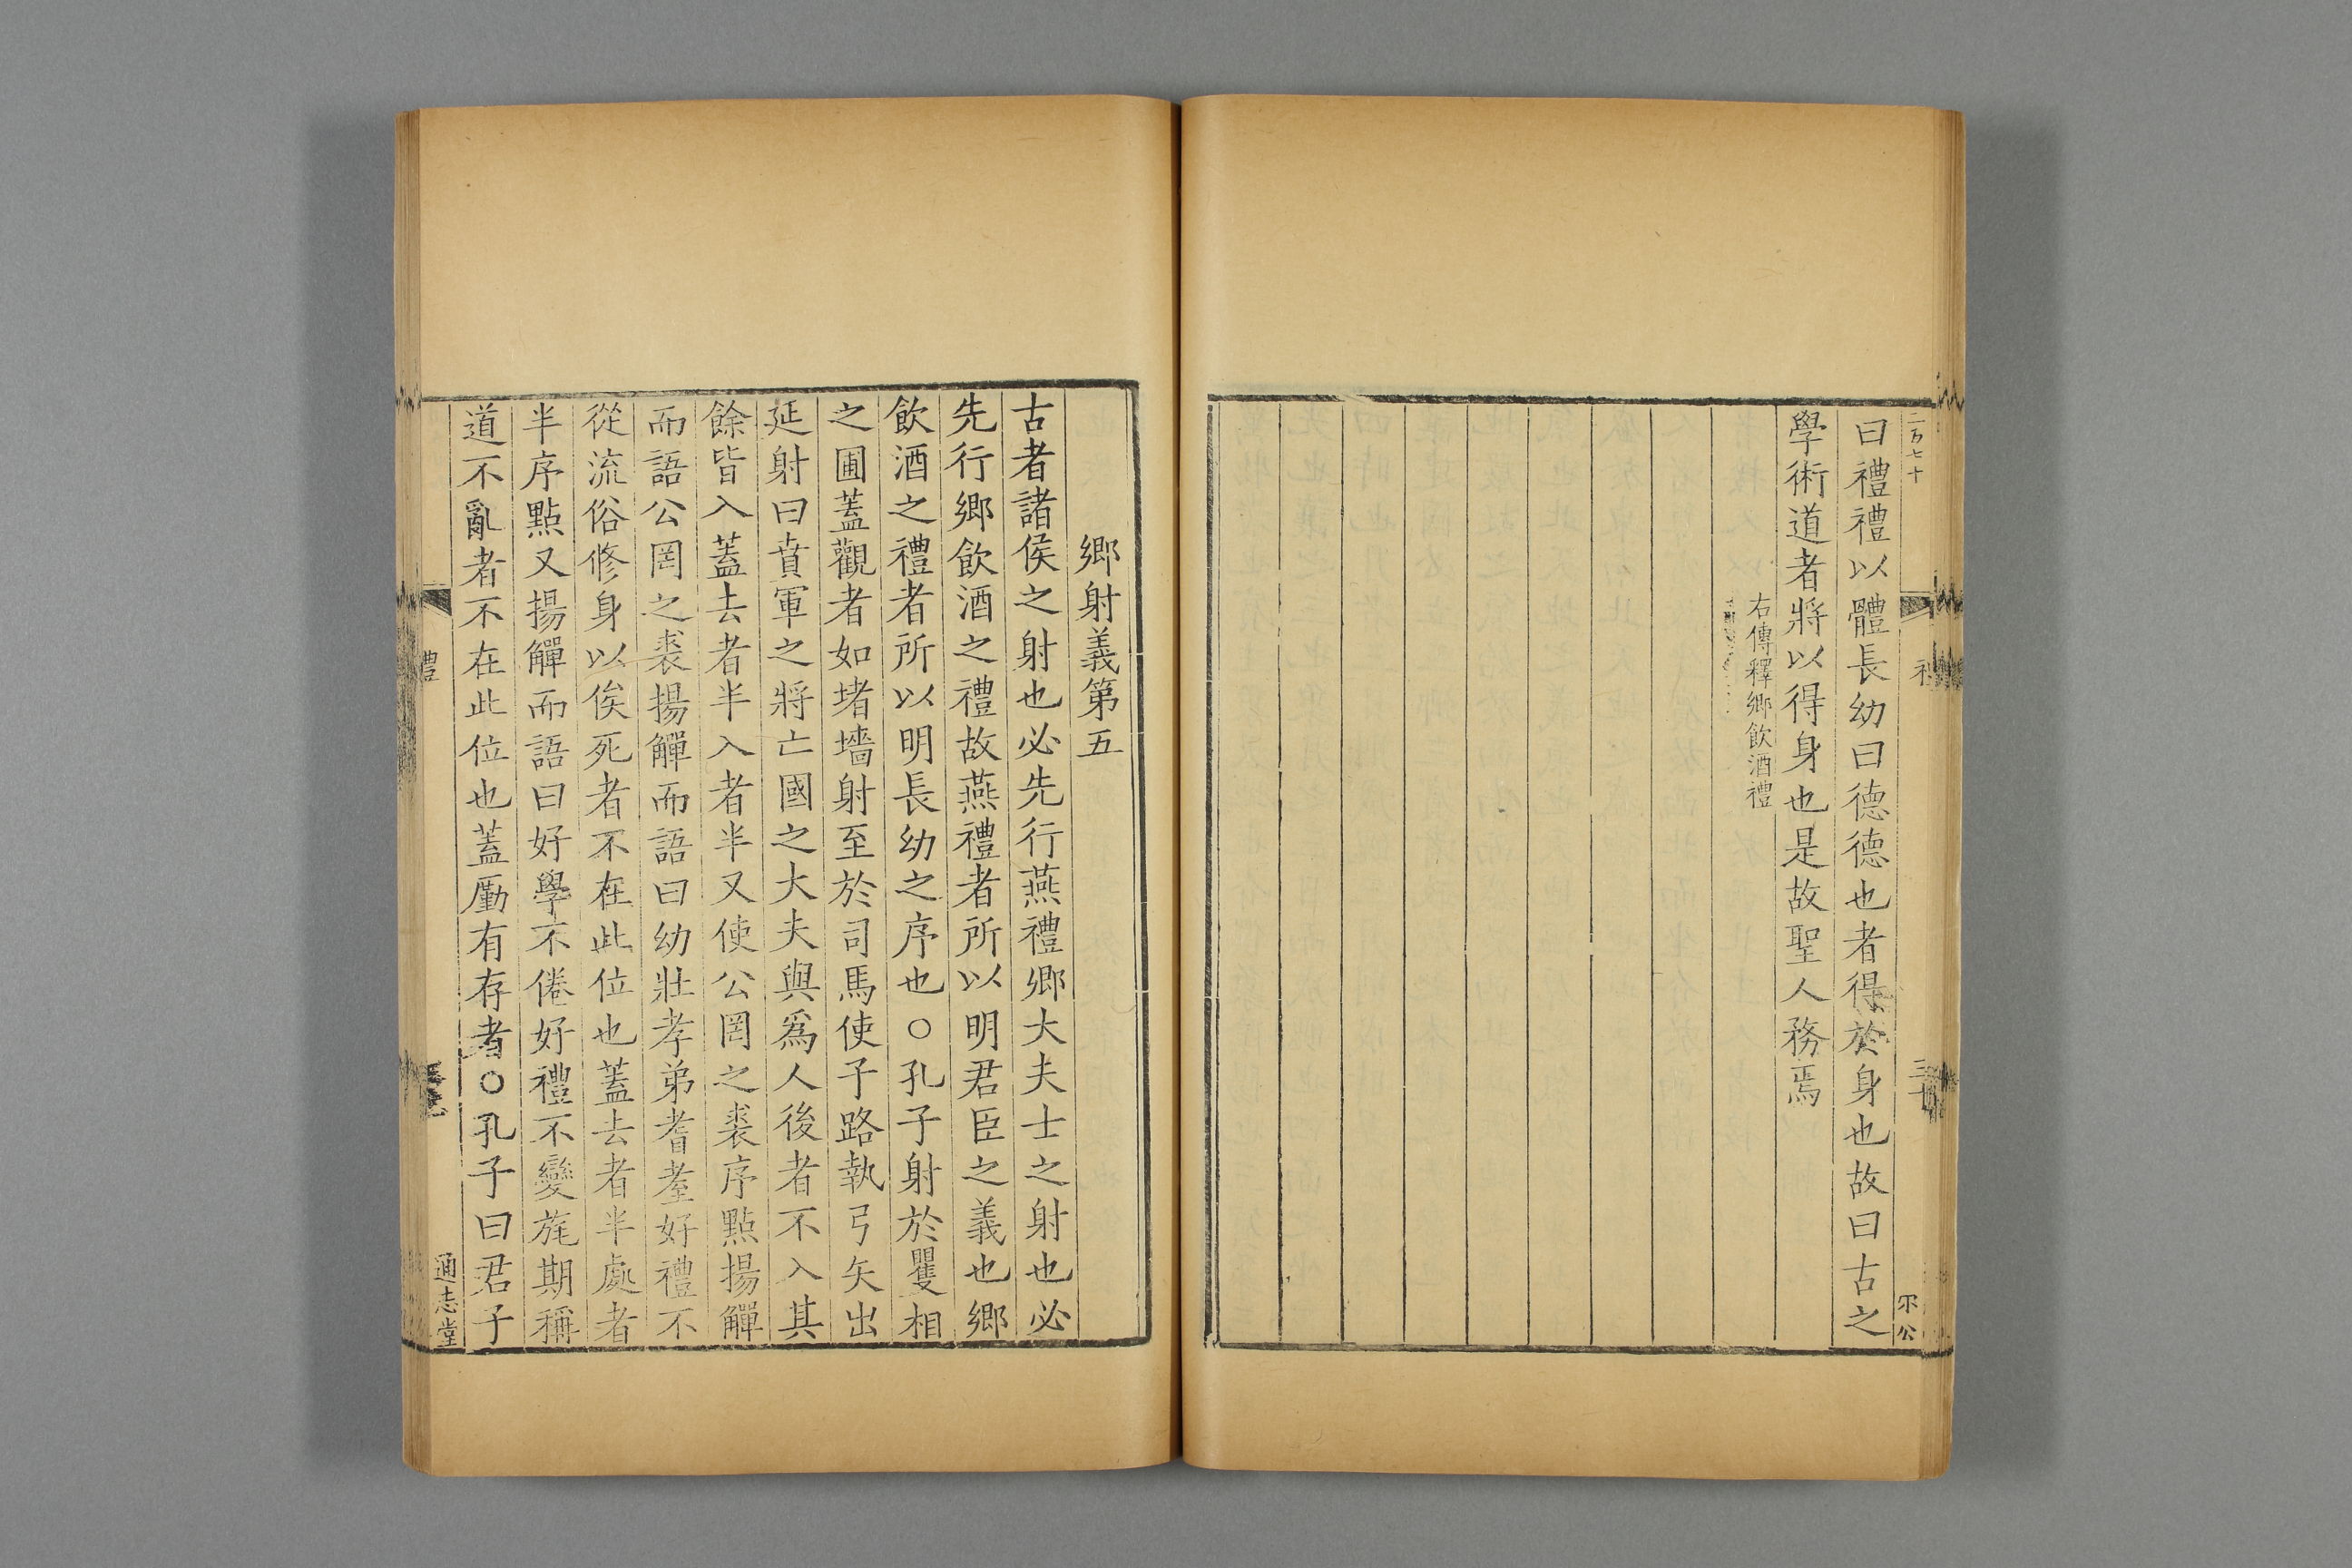 二百七十
曰禮禮以體長幼曰德德也者得於身也故曰古之
學術道者將以得身也是故聖人務焉
右傳釋鄉飲酒禮
鄉射義第五
古者諸侯之射也必先行燕禮卿大夫士之射也必
先行鄉飲酒之禮故燕禮者所以明君臣之義也鄉
飲酒之禮者所以明長幼之序也○孔子射於矍相
之圃蓋觀者如堵墻射至於司馬使子路執弓矢出
延射曰賁軍之將亡國之大夫與爲人後者不入其
餘皆入蓋去者半入者半又使公罔之裘序點揚觶
而語公罔之裘揚觶而語曰幼壯孝弟耆耋好禮不
從流俗修身以俟死者不在此位也蓋去者半處者
半序點又揚觶而語曰好學不倦好禮不變旄期稱
道不亂者不在此位也蓋𠪱有存者○孔子曰君子
禮
通志堂